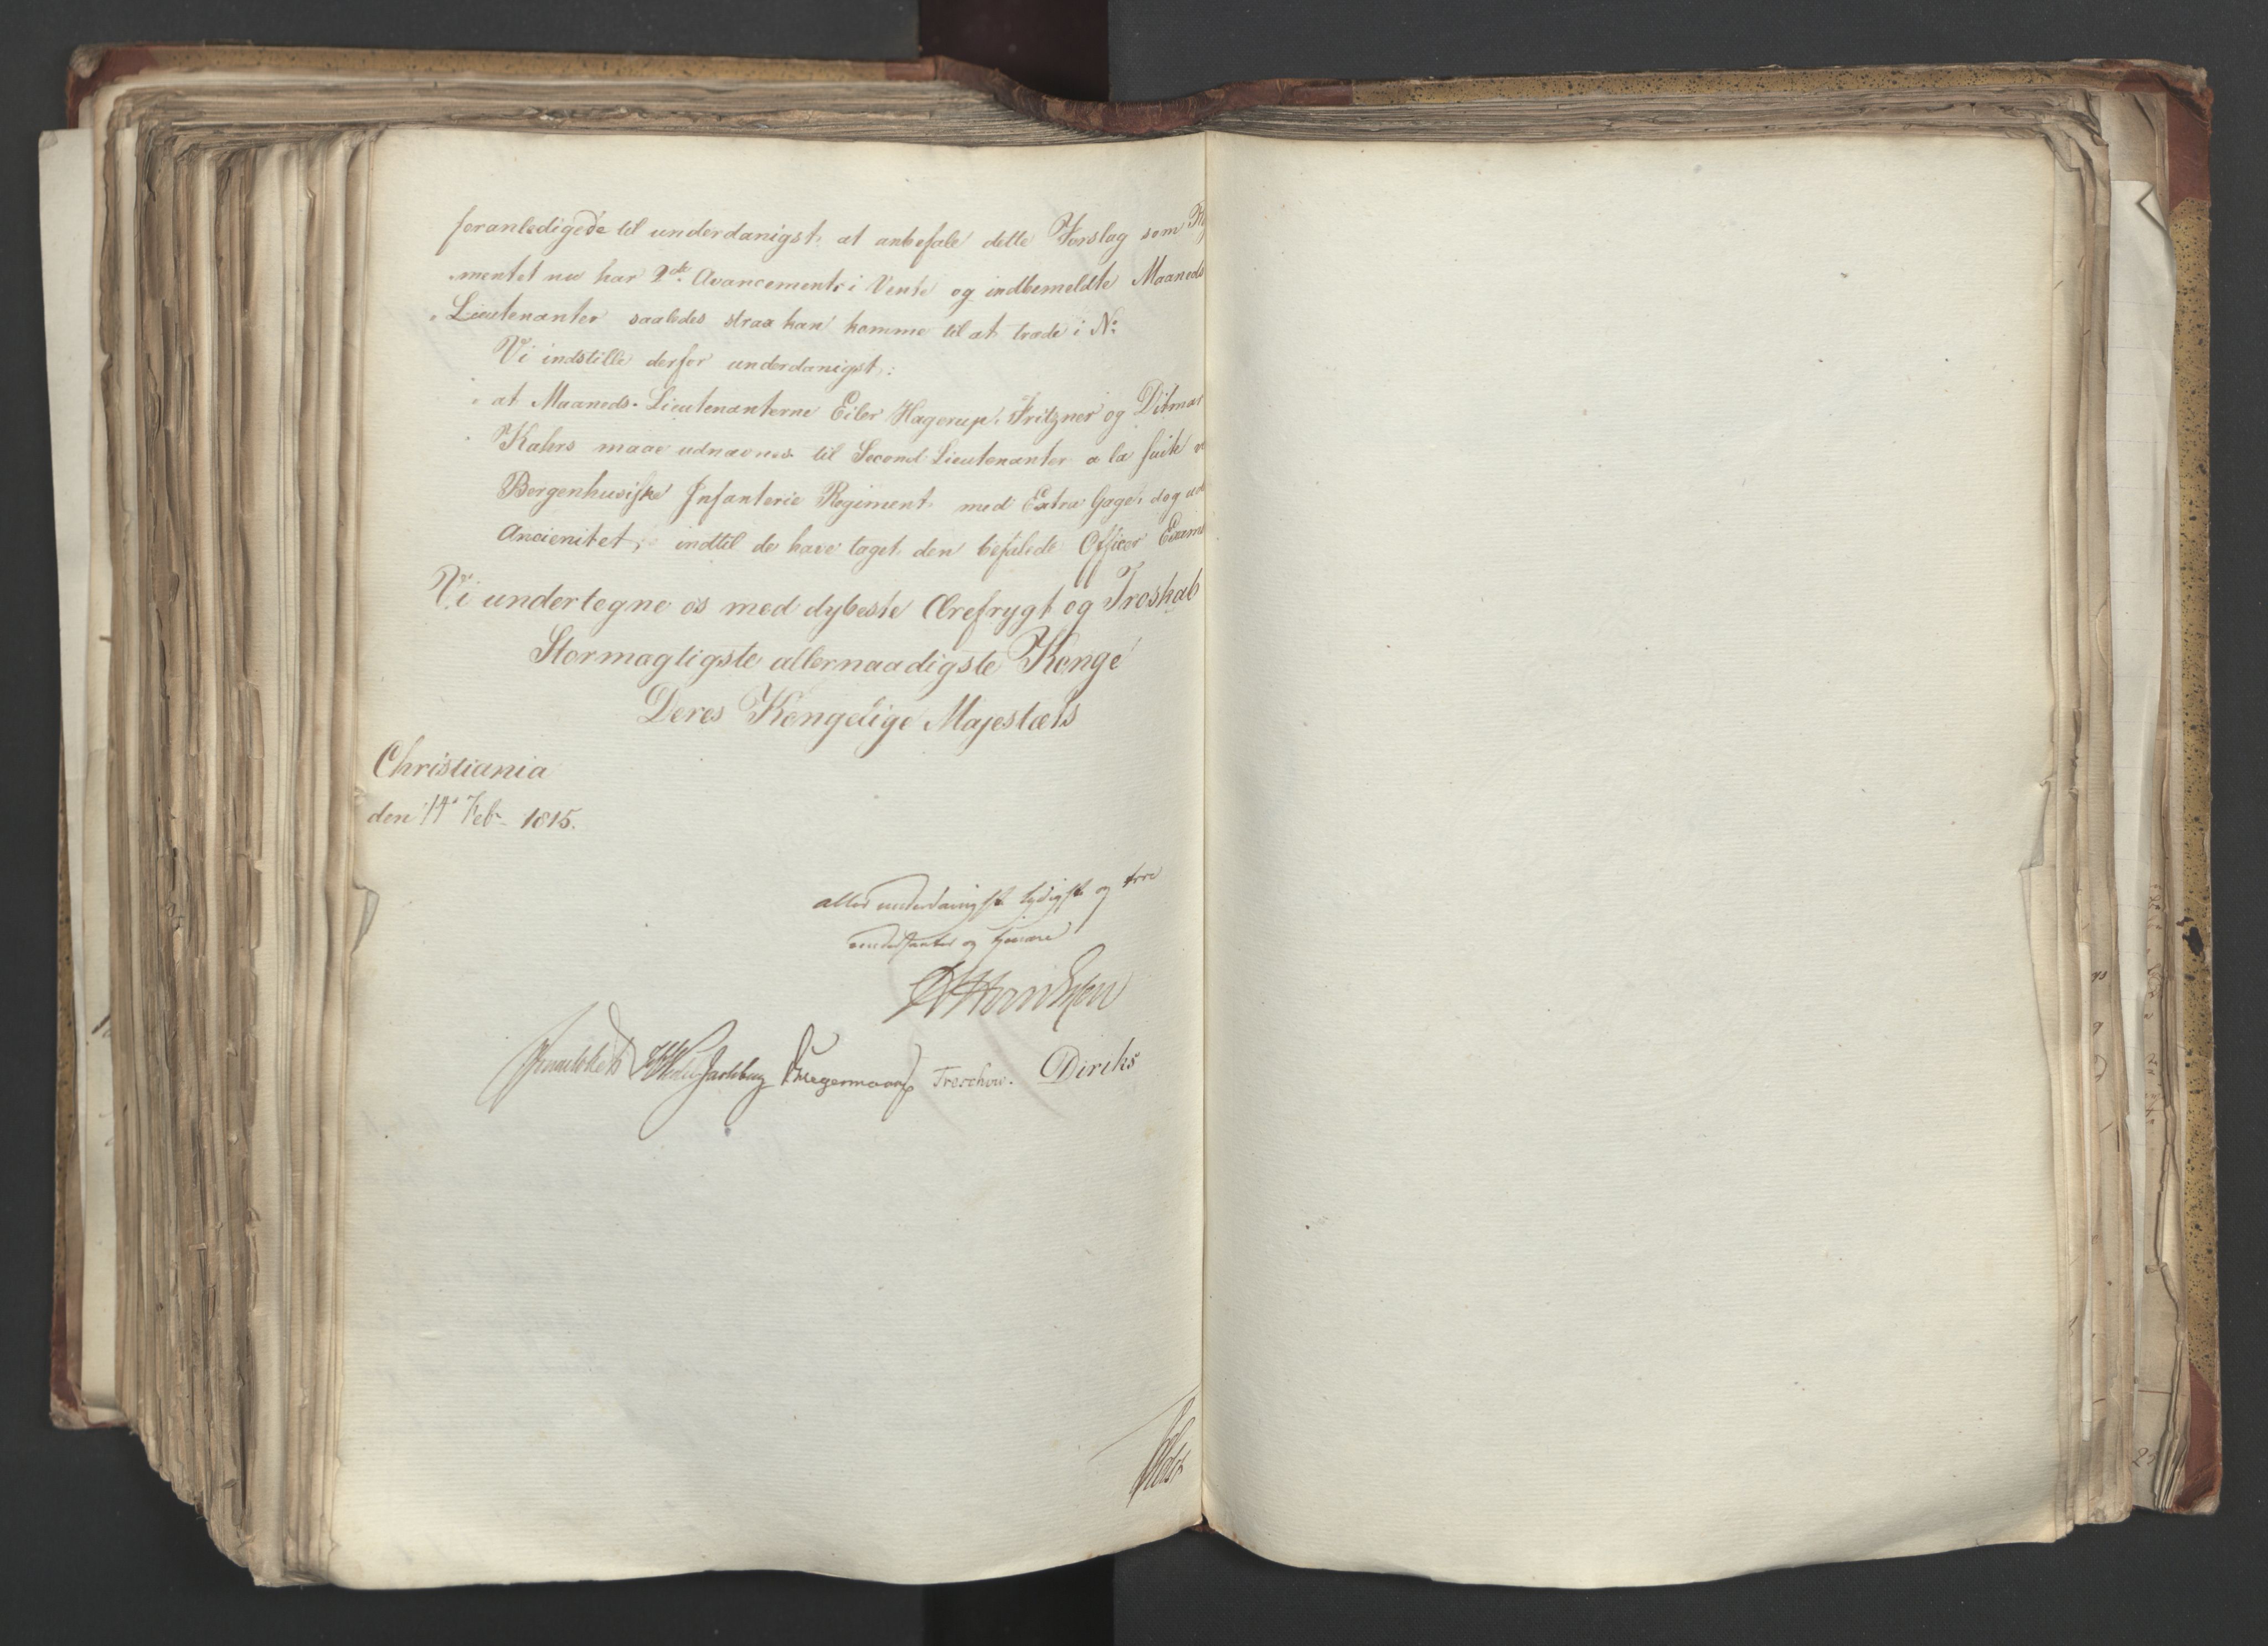 foranledigede til underdanigst at anbefale dette Forslag som
mentet nu har 2de Avancements i Vente og indbemeldte Maaneds
Lieutenanter saaledes strax kan komme til at træde i No
Vi indstille derfor underdanigst:
at Maaneds-Lieutenanterne Eiler Hagerup Fritzner og Ditmar
Kahrs maae udnævnes til Second-Lieutenanter a la suite v
Bergenhusiske Infanterie Regiment med Extra Gage, dog ud
Ancienitet, indtil de have taget den befalede Officer Exame
Vi undertegne os med dybeste Ærefrygt og Troskab
Stormægtigste allernaadigste Konge
Deres Kongelige Majestæts
Christiania
den 14 Feb 1815.
allerunderdanigst lydigste og troe
undersaatter og tjenere
Jarlsberg Krogermann Treschow. Diriks
Holst